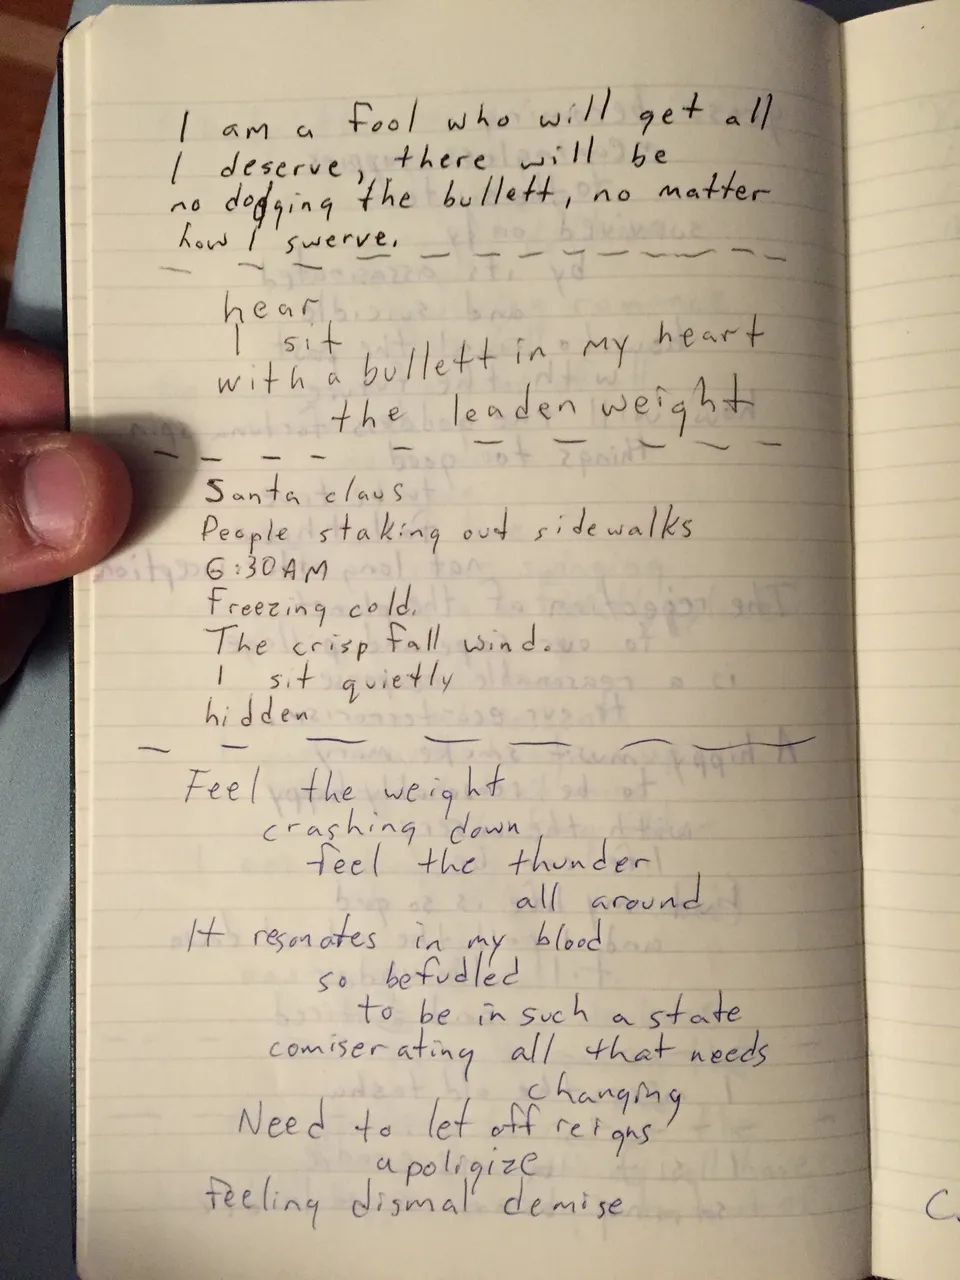 I am a fool who will get all
I deserve, there will be
no dodging the bullett, no matter
how I swerve.
hear
I sit
with a bullett in my heart
the leaden weight
Santa claus
People staking out sidewalks
6:30AM
Freezing cold.
The crisp fall wind.
I sit quietly
hidden
Feel the weight
crashing down
feel the thunder
all around
It resonates in my blood
so befudled
to be in such a state
comiserating all that needs
changing
Need to let off reigns
apoligize
feeling dismal demise
C.